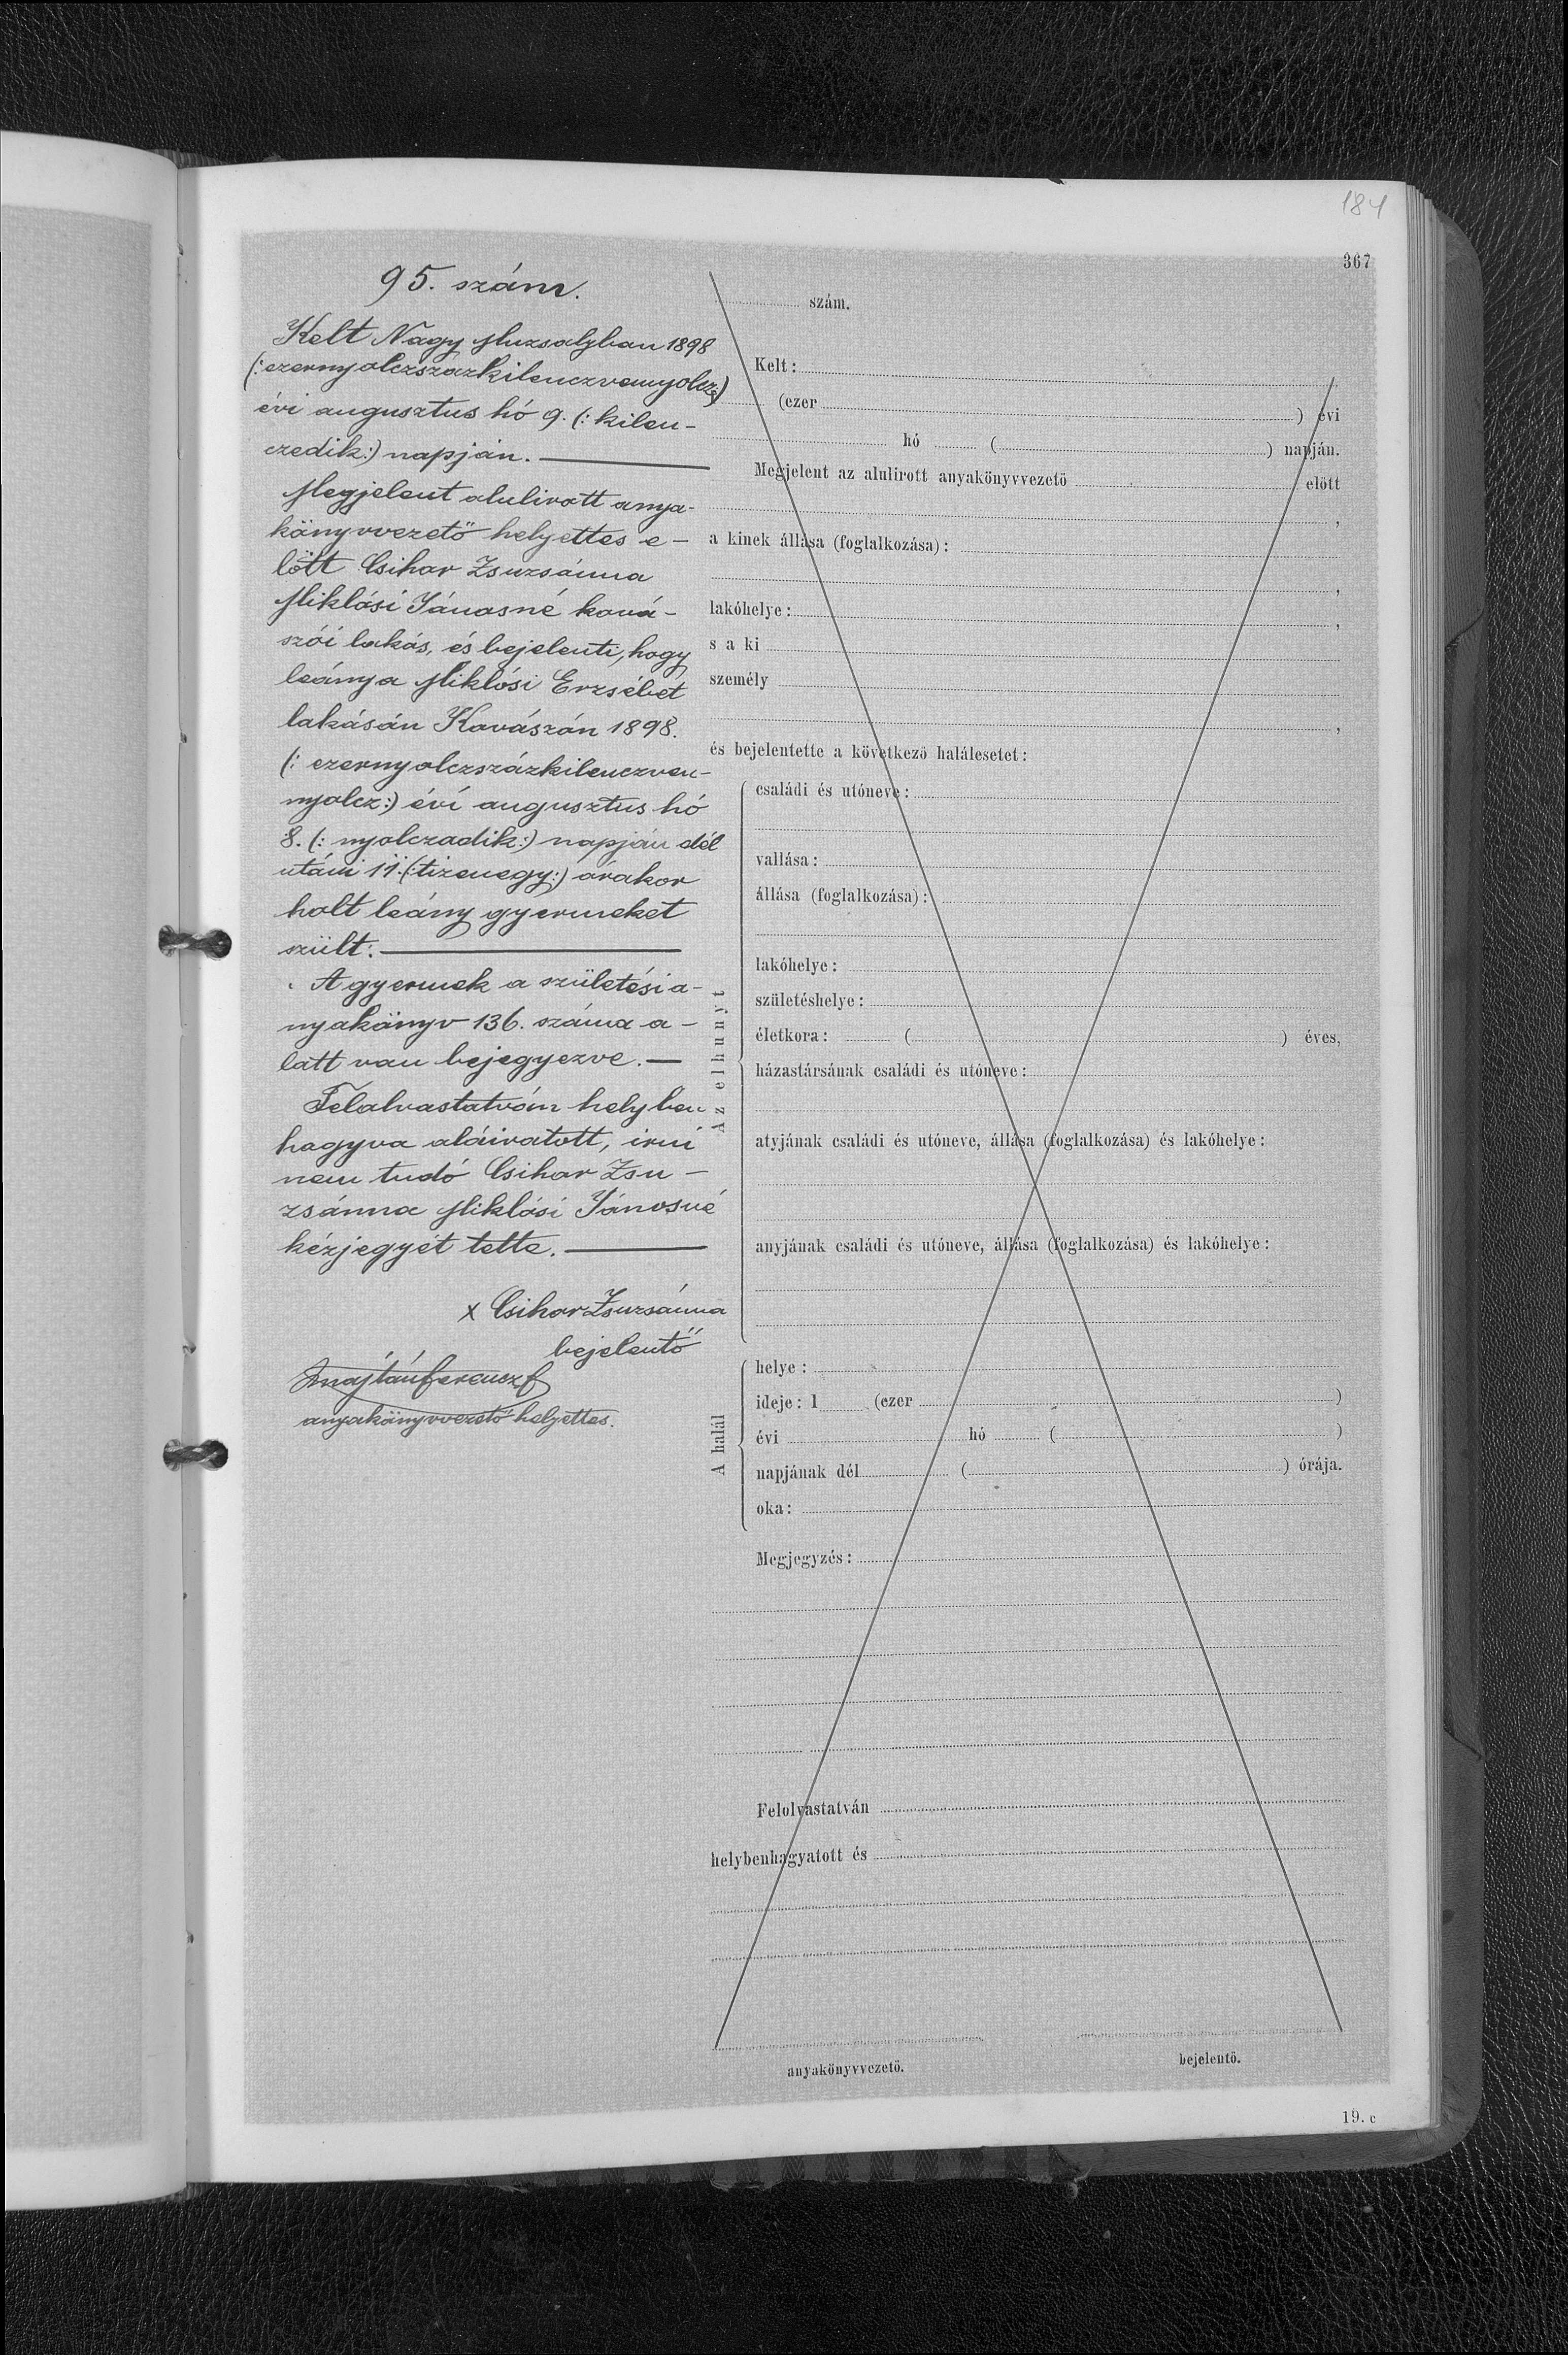 184
367
95. szám.
Kelt Nagy Muzsalyban 1898
(: ezernyolczszázkilenczvennyolcz:)
évi augusztus hó 9. (: kilen-
czedik:) napján.
Megjelent alulirott anya-
könyvvezető helyettes e-
lőtt Csihar Zsuzsánna
Miklósi Jánosné ková-
szói lakós, és bejelenti, hogy
leánya Miklósi Erzsébet
lakásán Kovászón 1898.
(: ezernyolczszázkilenczven-
nyolcz:) évi augusztus hó
8. (: nyolczadik:) napján dél
utáni 11. (: tizenegy:) órakor
holt leány gyermeket
szült:
A gyermek a születési a-
nyakönyv 136. száma a-
latt van bejegyezve.
Felolvastatván helyben
hagyva aláiratott, irni
nem tudó Csihar Zsu-
zsánna Miklósi Jánosné
kézjegyét tette.
x Csihar Zsuzsánna
bejelentő
Majtán Ferencz
anyakönyvvezető helyettes.
szám.
Kelt:
(ezer ) évi
hó ( ) napján.
Megjelent az alulirott anyakönyvvezetö elött
,
a kinek állása (foglalkozása):
,
lakóhelye: ,
s a ki
személy
,
és bejelentette a következö halálesetet:
Az elhunyt
családi és utóneve:
vallása:
állása (foglalkozása):
lakóhelye:
születéshelye:
életkora: ( ) éves,
házastársának családi és utóneve:
atyjának családi és utóneve, állása (foglalkozása) és lakóhelye:
anyjának családi és utóneve, állása (foglalkozása) és lakóhelye:
A halál
helye:
ideje: 1 (ezer )
évi hó ( )
napjának dél ( ) órája.
oka:
Megjegyzés:
Felolvastatván
helybenhagyatott és
anyakönyvvezetö.
bejelentö.
19. c